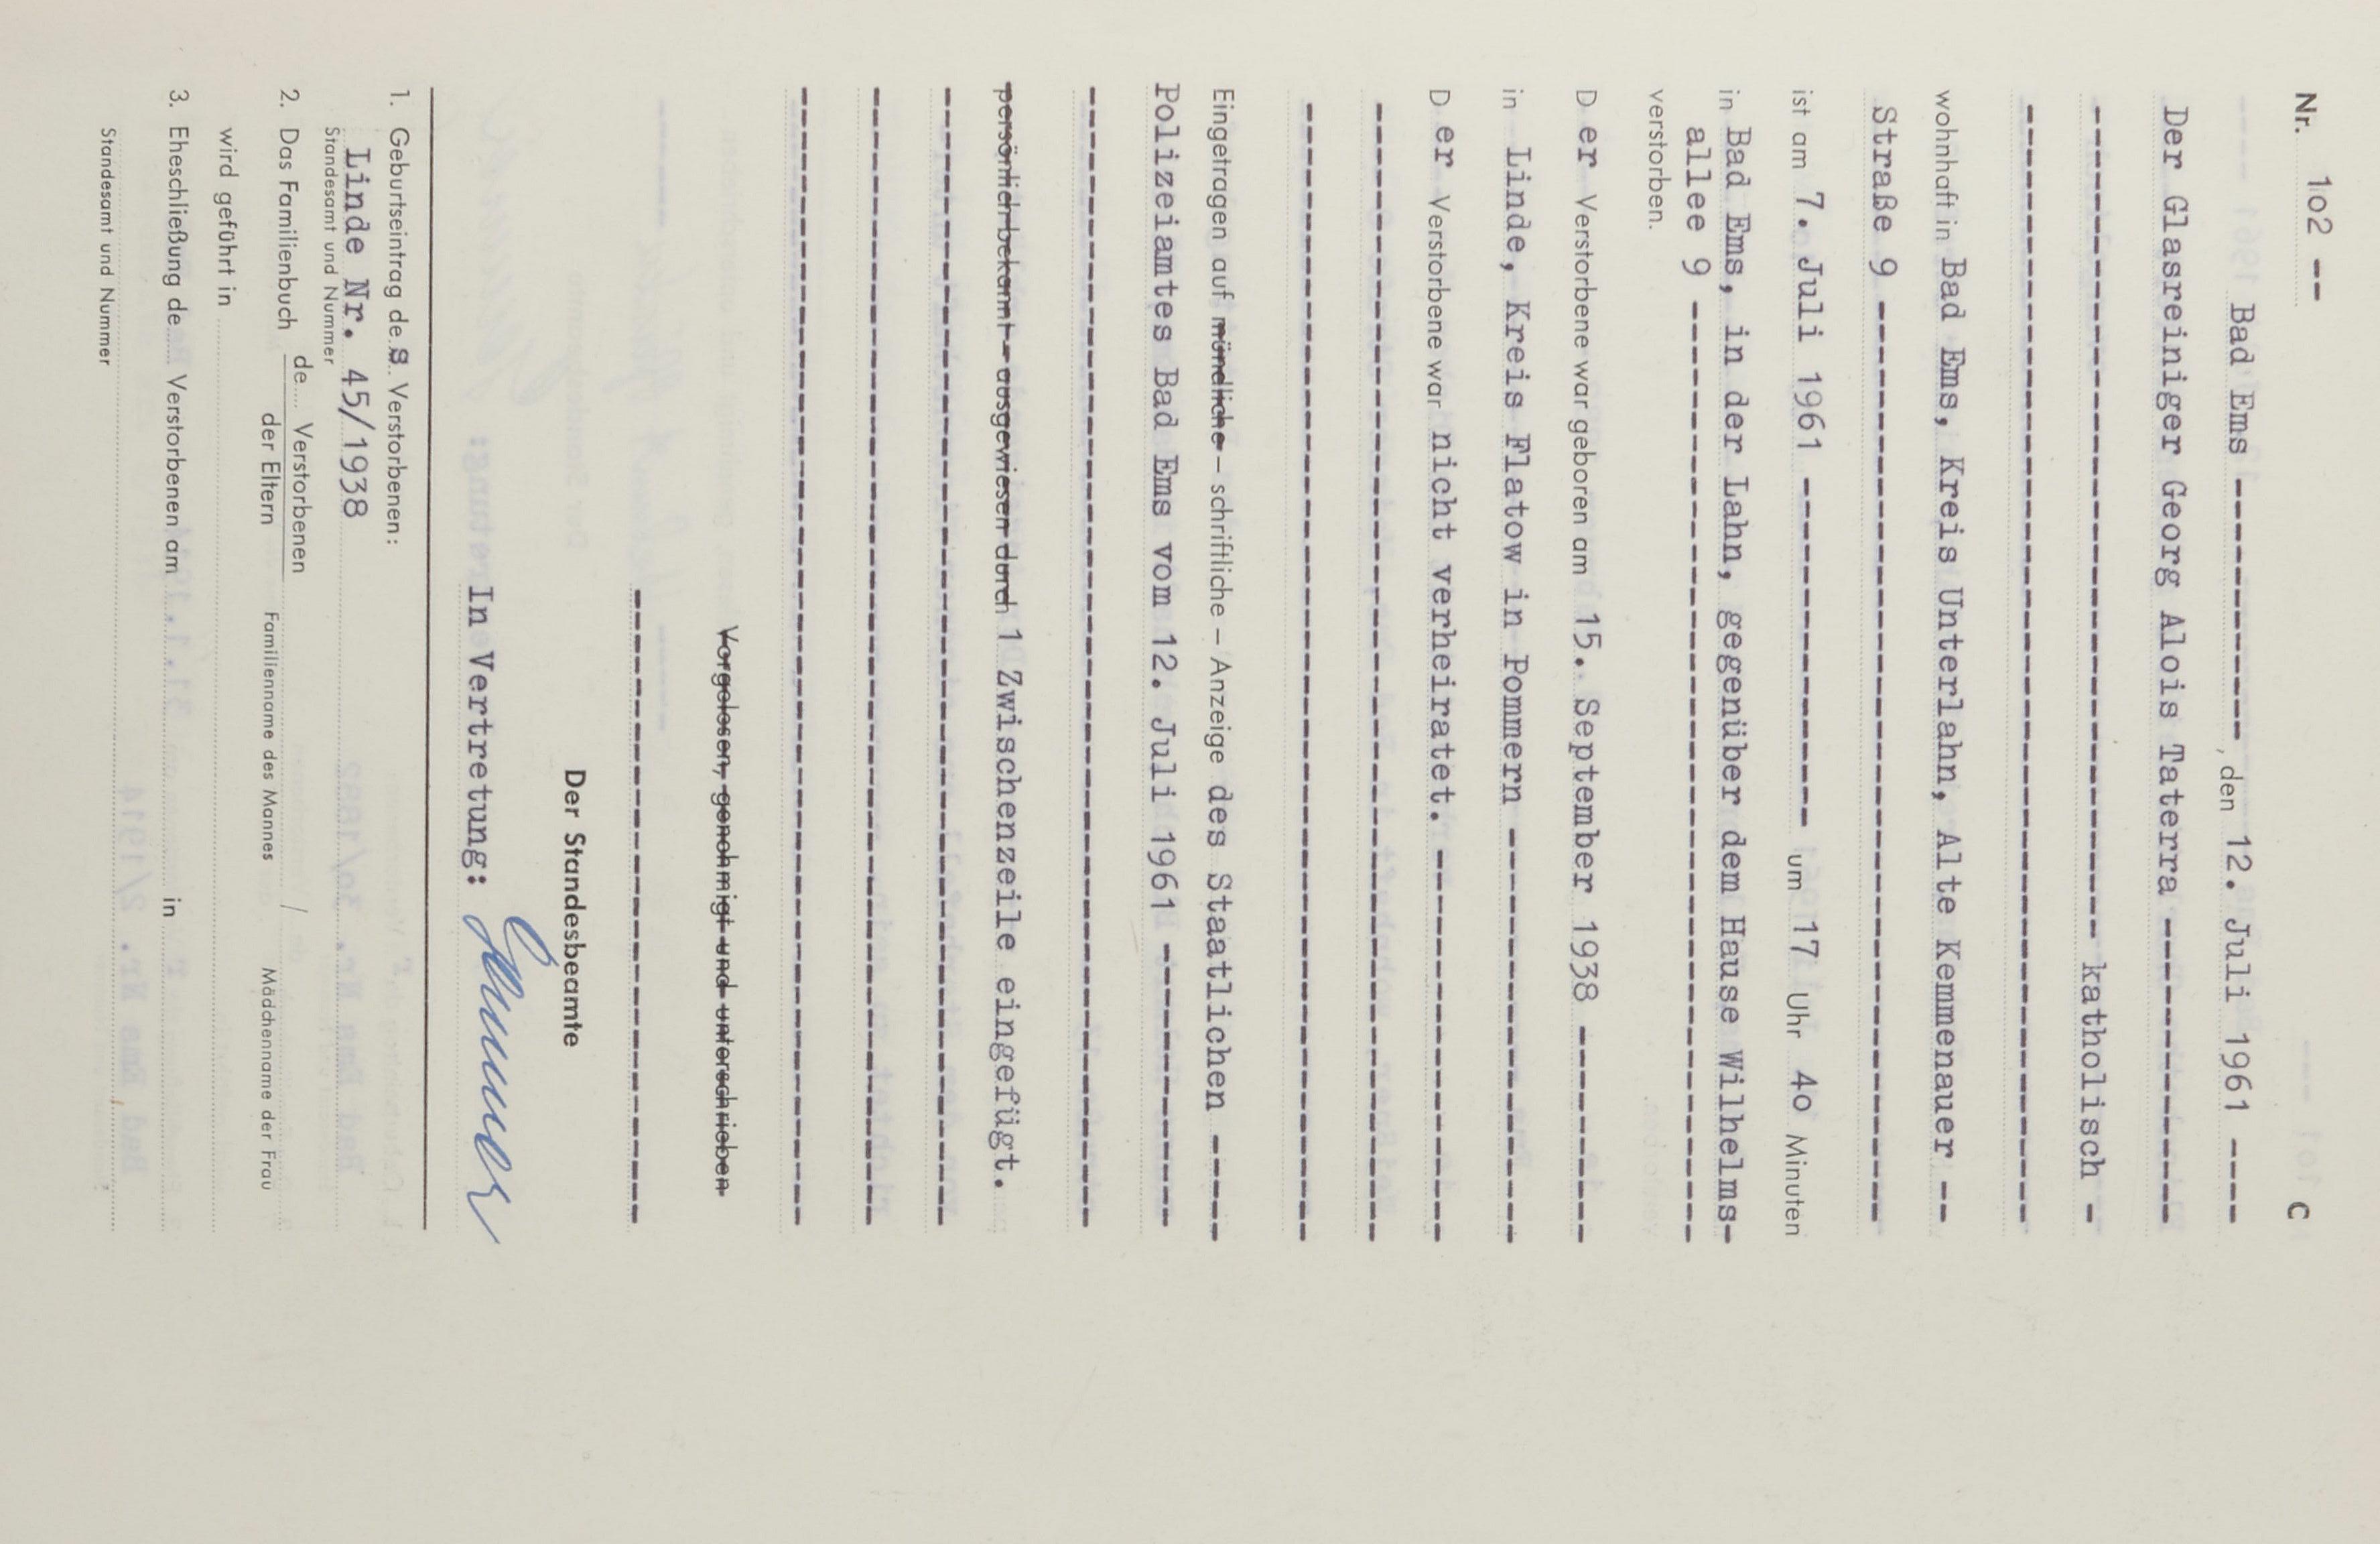 Nr. 1o2 -- C
Bad Ems ----------------, den 12. Juli 1961 ----
Der Glasreiniger Georg Alois Taterra ----------------
---------------------------------------- katholisch -
------------------------------------------------------
wohnhaft in Bad Ems, Kreis Unterlahn, Alte Kemmenauer --
Straße 9 ----------------------------------------------
ist am 7. Juli 1961 -------------------- um 17 Uhr 4o Minuten
in Bad Ems, in der Lahn, gegenüber dem Hause Wilhelms-
allee 9 ----------------------------------------------
verstorben.
D er Verstorbene war geboren am 15. September 1938 ----------
in Linde, Kreis Flatow in Pommern --------------------
D er Verstorbene war nicht verheiratet. --------------------
------------------------------------------------------
------------------------------------------------------
Eingetragen auf mündliche – schriftliche – Anzeige des Staatlichen -----
Polizeiamtes Bad Ems vom 12. Juli 1961 --------------
------------------------------------------------------
persönlich bekannt – ausgewiesen durch 1 Zwischenzeile eingefügt.
------------------------------------------------------
------------------------------------------------------
------------------------------------------------------
Vorgelesen, genehmigt und unterschrieben
------------------------------
Der Standesbeamte
In Vertretung:
1. Geburtseintrag des Verstorbenen:
Linde Nr. 45/1938
Standesamt und Nummer
2. Das Familienbuch de.... Verstorbenen /
der Eltern Familienname des Mannes Mädchenname der Frau
wird geführt in
3. Eheschließung de.... Verstorbenen am in
Standesamt und Nummer